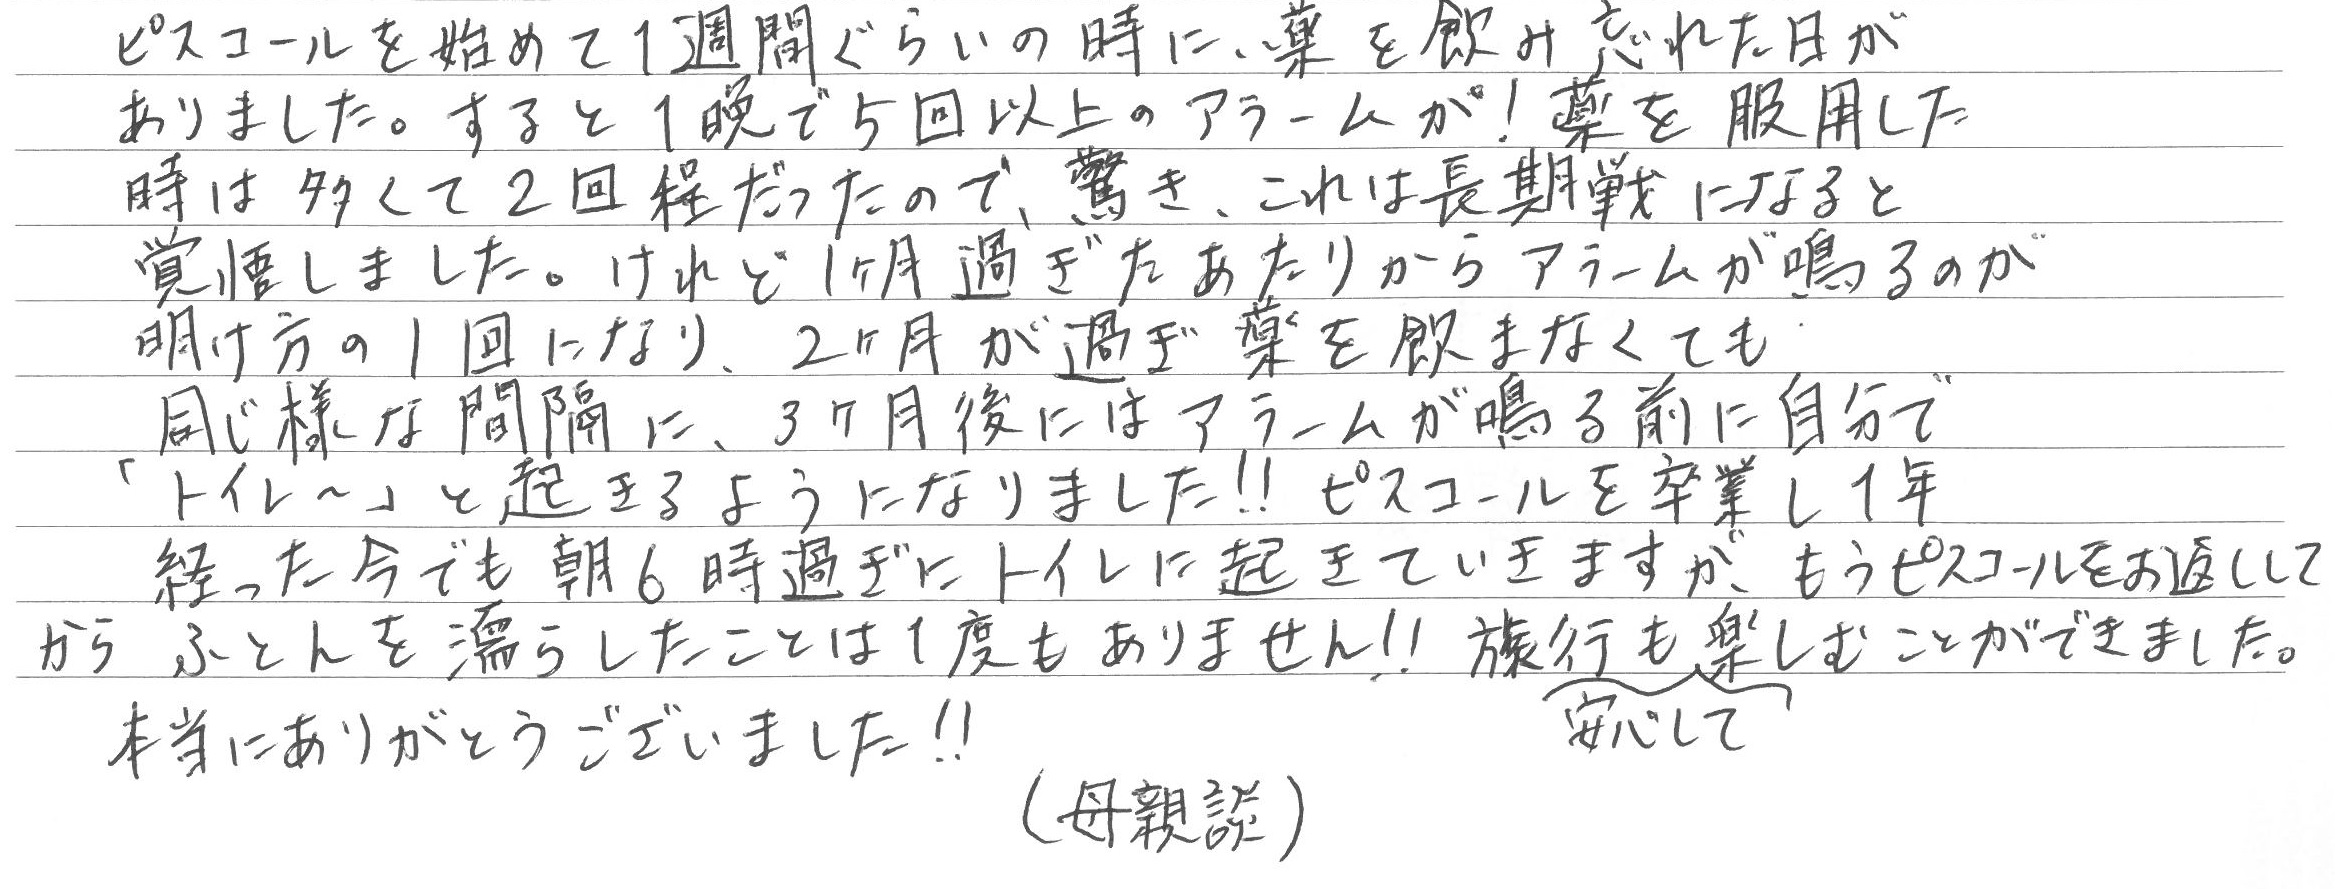 ピスコールを始めて1週間ぐらいの時に、薬を飲み忘れた日が
ありました。すると1晩で5回以上のアラームが!薬を服用した
時は多くて2回程だったので、驚き、これは長期戦になると
覚悟しました。けれど1ヶ月過ぎたあたりからアラームが鳴るのが
明け方の1回になり、2ヶ月が過ぎ薬を飲まなくても
同じ様な間隔に、3ヶ月後にはアラームが鳴る前に自分で
「トイレ〜」と起きるようになりました!!ピスコールを卒業し1年
経った今でも朝6時過ぎにトイレに起きていきますが、もうピスコールをお返しして
からふとんを濡らしたことは1度もありません!!旅行も楽しむことができました。
安心して
本当にありがとうございました!!
(母親談)